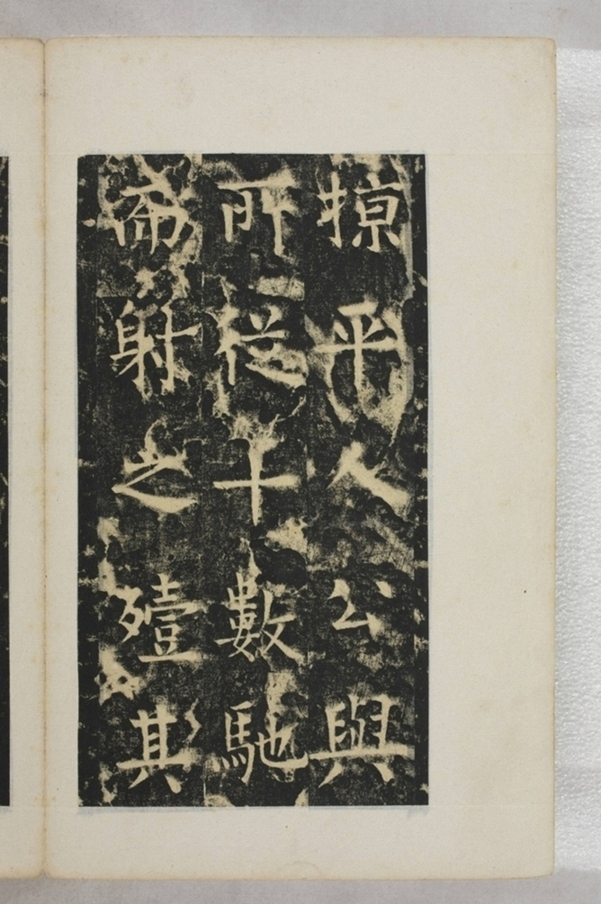 掠平人公與
所從十數馳
而射之殪其